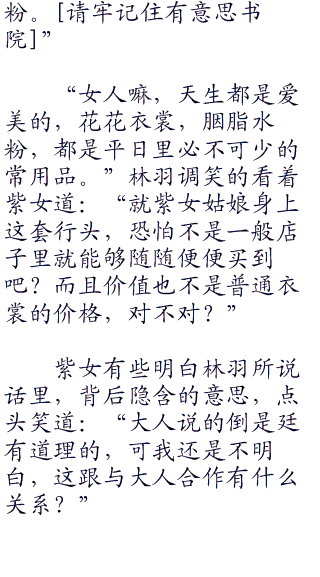 粉。[请牢记住有意思书
院]”
“女人嘛，天生都是爱
美的，花花衣裳，胭脂水
粉，都是平日里必不可少的
常用品。”林羽调笑的看着
紫女道：“就紫女姑娘身上
这套行头，恐怕不是一般店
子里就能够随随便便买到
吧？而且价值也不是普通衣
裳的价格，对不对？”
紫女有些明白林羽所说
话里，背后隐含的意思，点
头笑道：“大人说的倒是廷
有道理的，可我还是不明
白，这跟与大人合作有什么
关系？”